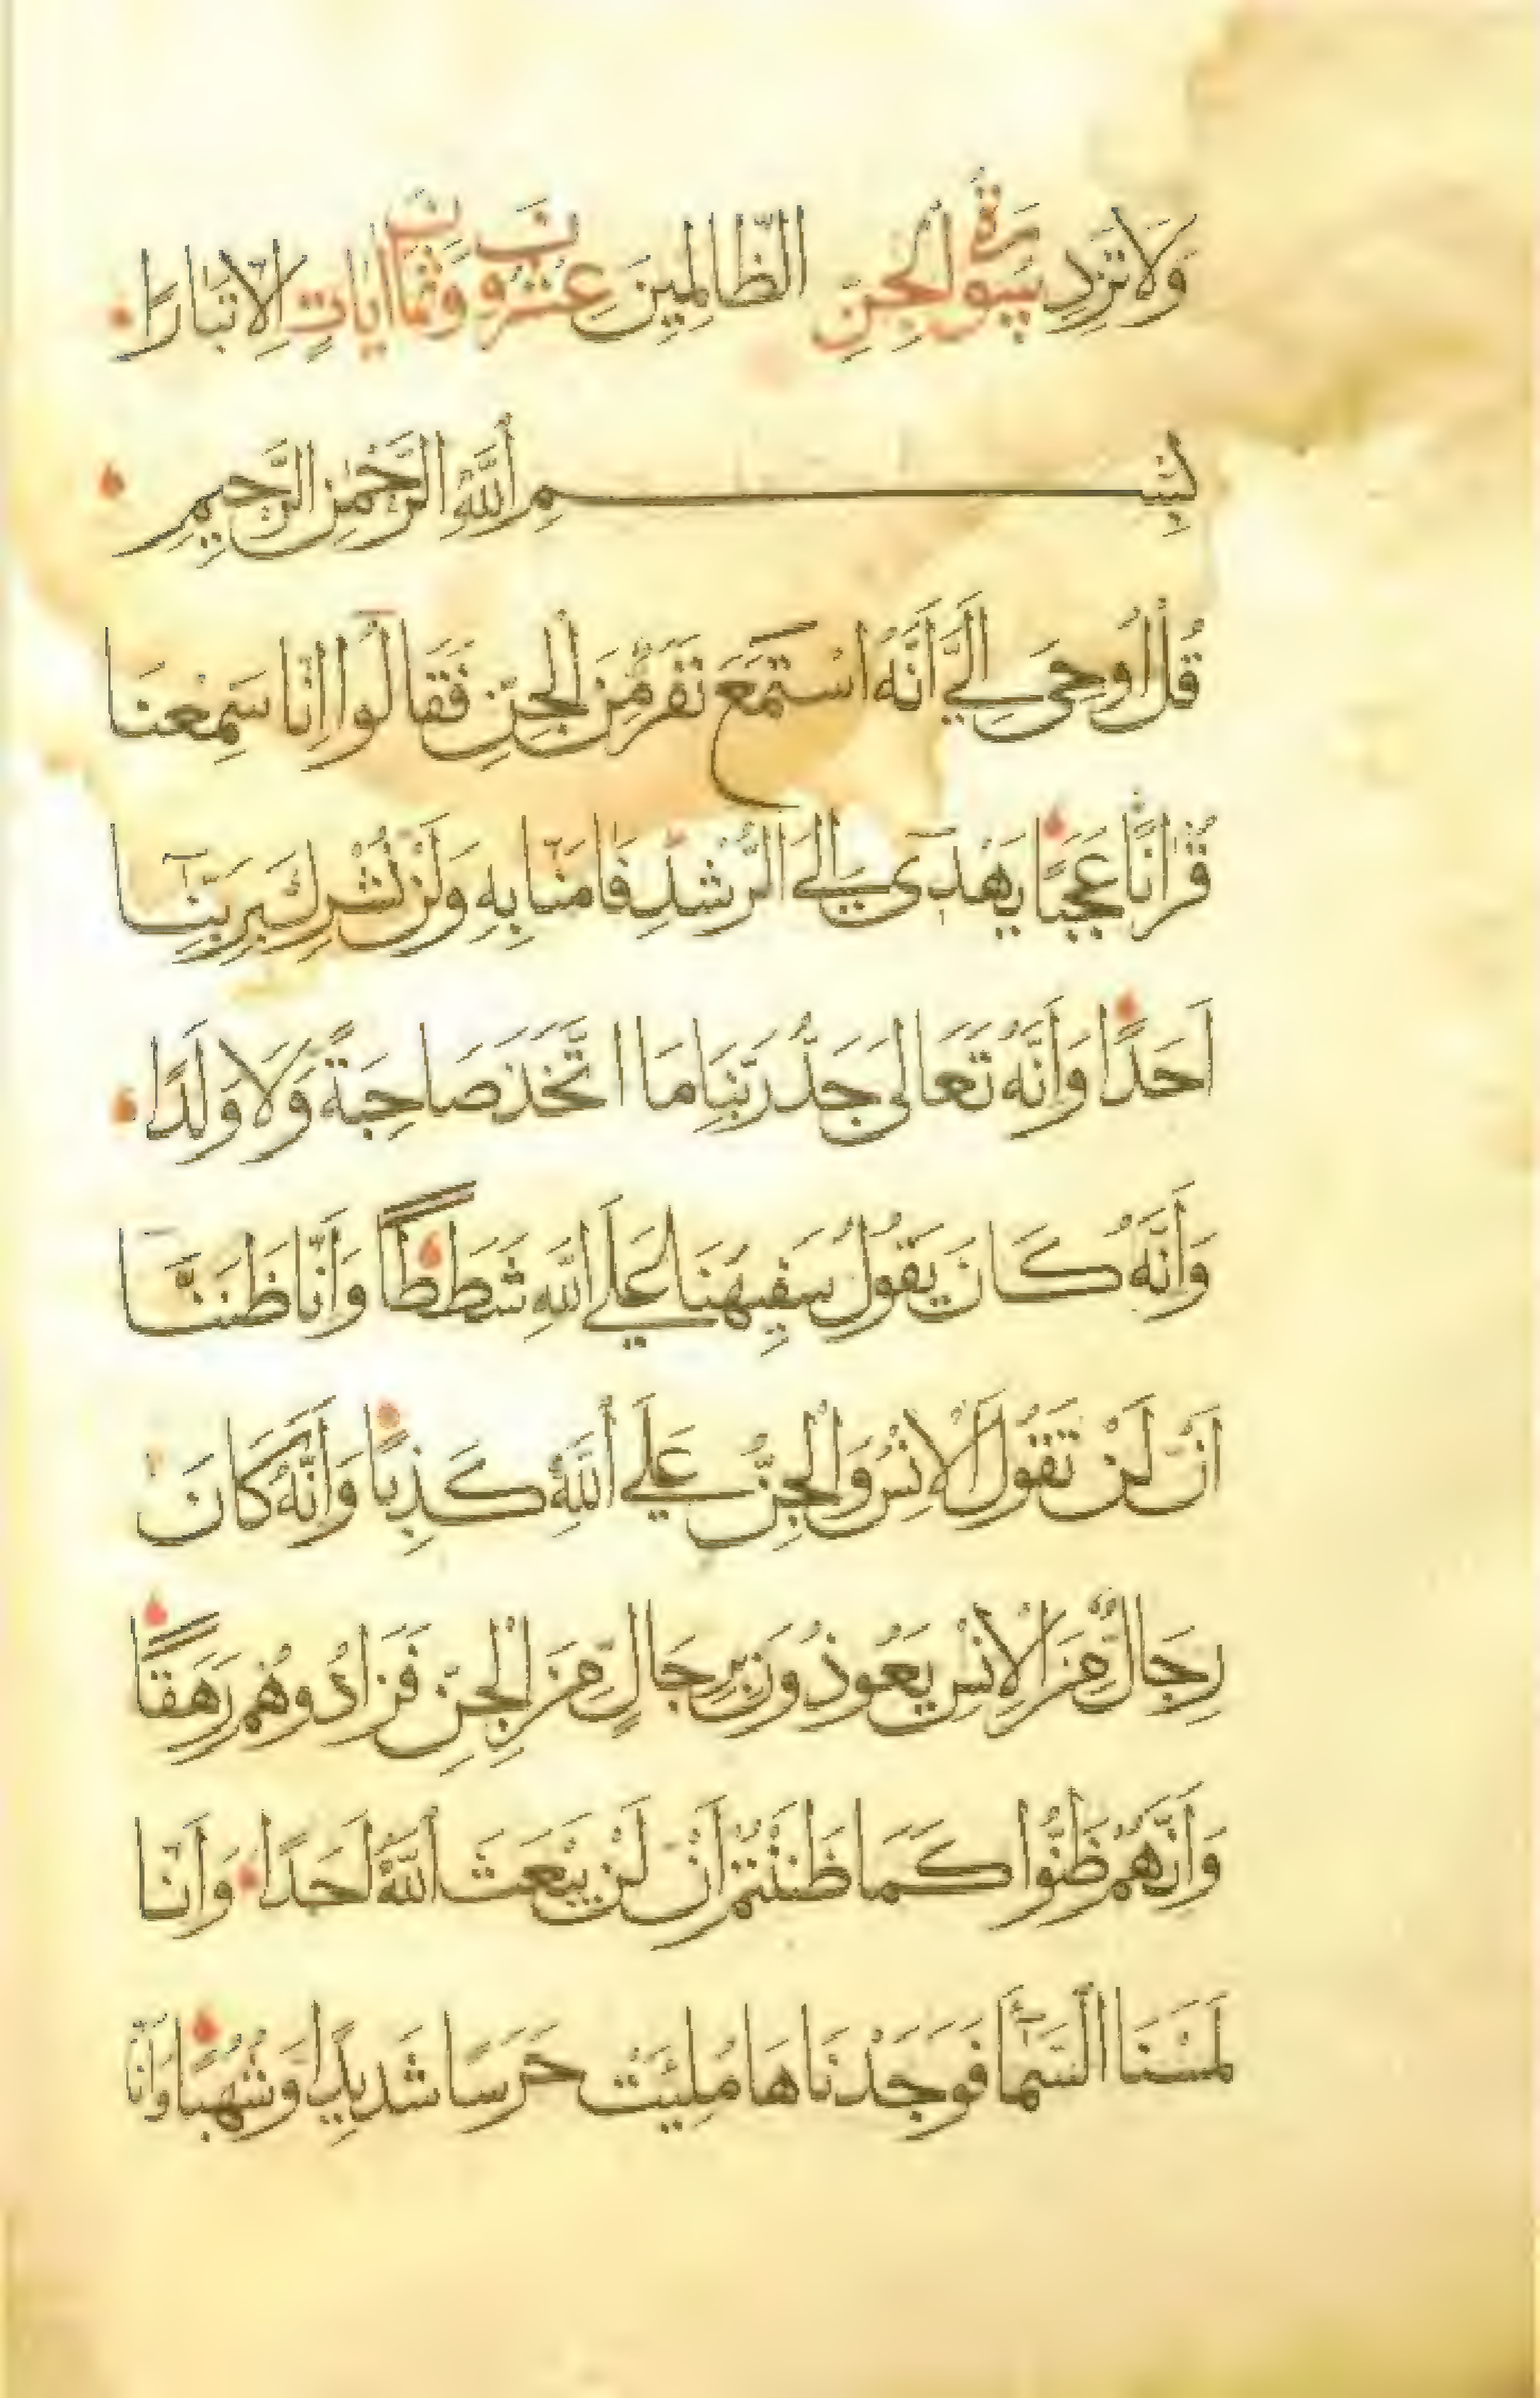 وَلَا تَزِدِ سُورَةُ الْجِنِّ الظَّالِمِينَ عِشْرُونَ وَثَمَانُ آيَاتٍ إِلَّا تَبَارًا
بِسْمِ اللَّهِ الرَّحْمَٰنِ الرَّحِيمِ
قُلْ أُوحِيَ إِلَيَّ أَنَّهُ اسْتَمَعَ نَفَرٌ مِّنَ الْجِنِّ فَقَالُوا إِنَّا سَمِعْنَا
قُرْآنًا عَجَبًا يَهْدِي إِلَى الرُّشْدِ فَآمَنَّا بِهِ وَلَنْ نُشْرِكَ بِرَبِّنَا
أَحَدًا وَأَنَّهُ تَعَالَى جَدُّ رَبِّنَا مَا اتَّخَذَ صَاحِبَةً وَلَا وَلَدًا
وَأَنَّهُ كَانَ يَقُولُ سَفِيهُنَا عَلَى اللَّهِ شَطَطًا وَأَنَّا ظَنَنَّا
أَنْ لَنْ تَقُولَ الْإِنْسُ وَالْجِنُّ عَلَى اللَّهِ كَذِبًا وَأَنَّهُ كَانَ
رِجَالٌ مِّنَ الْإِنْسِ يَعُوذُونَ بِرِجَالٍ مِّنَ الْجِنِّ فَزَادُوهُمْ رَهَقًا
وَأَنَّهُمْ ظَنُّوا كَمَا ظَنَنْتُمْ أَنْ لَنْ يَبْعَثَ اللَّهُ أَحَدًا وَأَنَّا
لَمَسْنَا السَّمَاءَ فَوَجَدْنَاهَا مُلِئَتْ حَرَسًا شَدِيدًا وَشُهُبًا وَأَنَّا